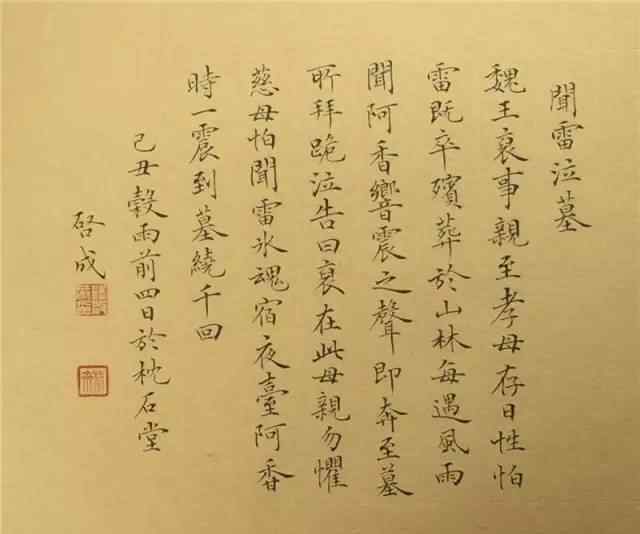 聞雷泣墓
魏王裒事親至孝母存日性怕
雷既卒殯葬於山林每遇風雨
聞阿香響震之聲即奔至墓
所拜跪泣告曰裒在此母親勿懼
慈母怕聞雷冰魂宿夜臺阿香
時一震到墓繞千回
己丑穀雨前四日於枕石堂
啓成